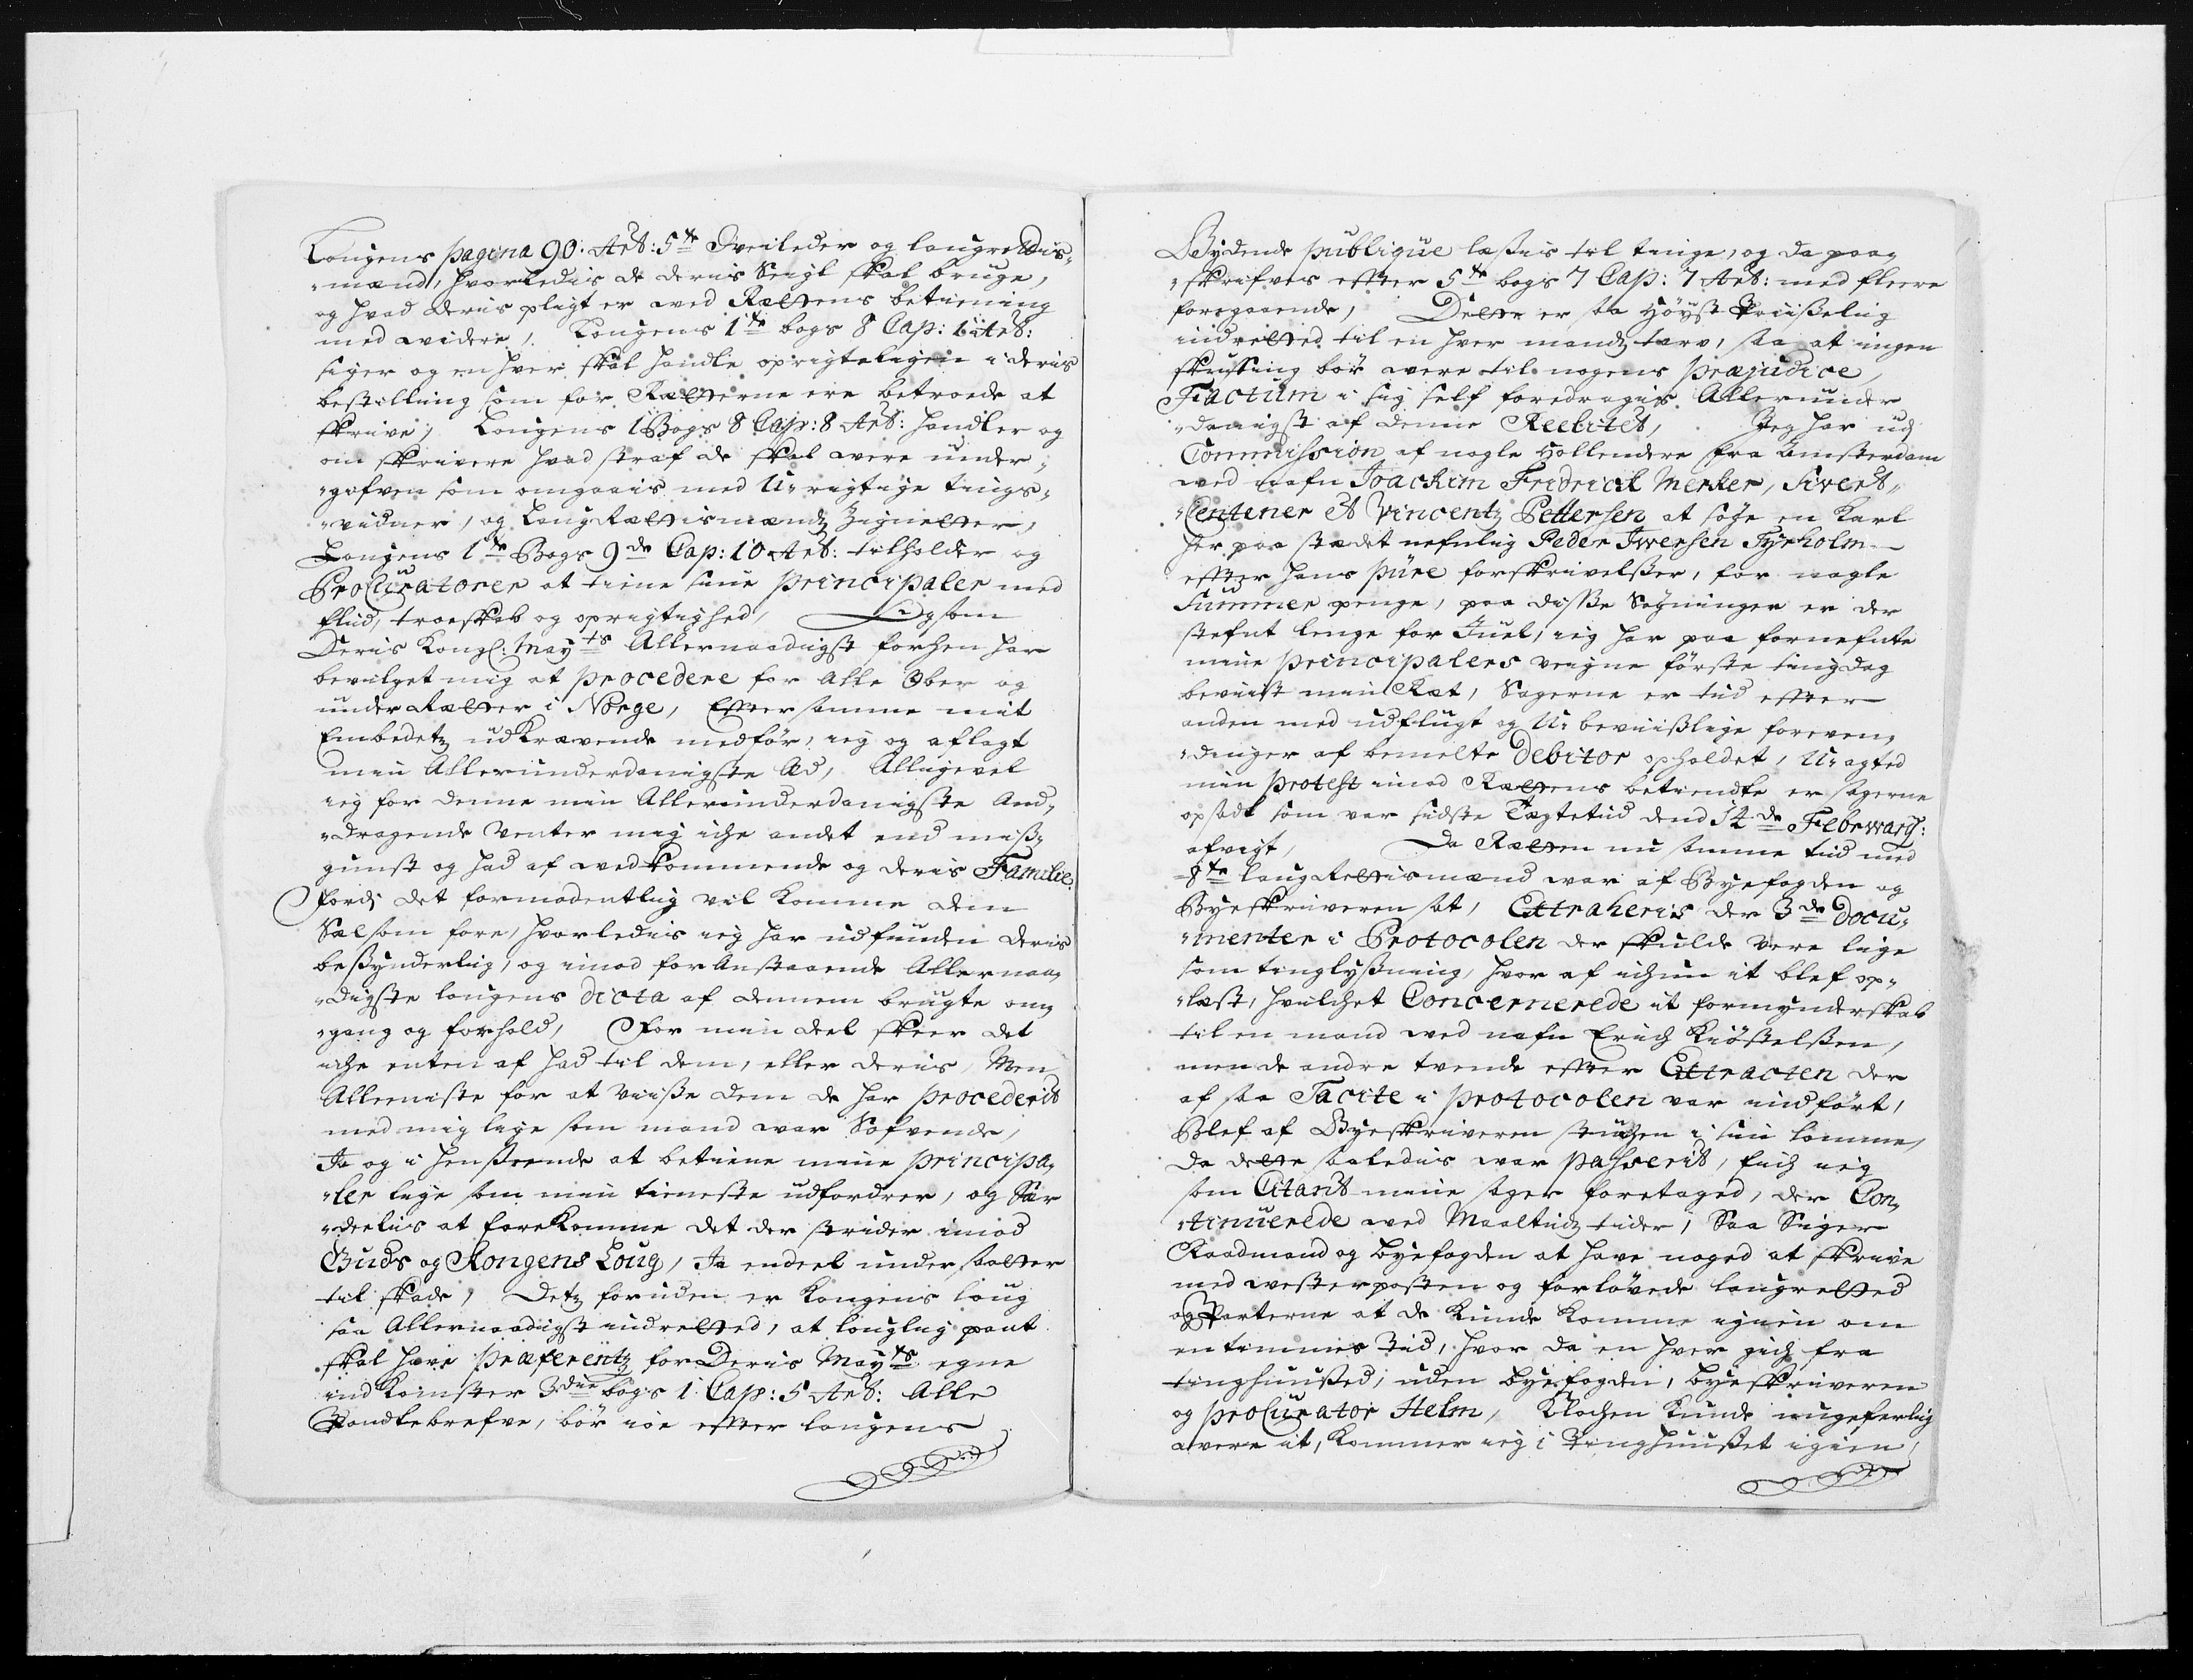 Lougens pagina 90. Art: 5te Tveileder og laugrettis-
"mænd, hvorledis de deris Seigl skal bruge,
og hvad deris pligt er ved Rættens betiening
med videre, Lougens 1te bogs 8 Cap: 1 Art:
siger og en hver skal handle oprigteligen i deris
bestilling som for Rætterne ere betroede at
skrive, Lougens 1 Bogs 8 Cap: 8 Art: handler og
om skrivere hvad straf de skal være under-
"gofven som omgaais med U-rigtige tings-
"vidner, og Laug Rættismænds Zignetter,
Lougens 1te Bogs 9de Cap: 10 Art: tilholder og
Procuratorer at tiene sine principaler med
flid, troeskab og oprigtighed, Ligsom
Deris Kongl: Mayts Allernaadigst forhen har
bevilget mig at procedere for Alle Ober og
under Rætter i Norge, Efter samme mit
Embedets udKrævende medfør, ieg og aflagt
min Allerunderdanigste Æd, Alligevel
ieg for denne min Allerunderdanigste And-
"dragende Venter mig iche andet end miss-
gunst og had af vedkommende og deris Familie
fordi det formodentlig vil komme dem
Sælsom fore, hvorledis ieg har udfunden deris
besynderlig, og imod foranstaaende Allernaa-
"digste lougens dicta af dennem brugte om-
"gang og forhold, for min deel skeer det
iche enten af had til dem, eller deris, Men
Alleeniste for at viisse dem de har procederit
med mig lige som mand var Sofvende,
Ja og i henseende at betiene mine principa-
"ler lige som min tieneste udfordrer, og Sær
"deelis at foreKomme det der strider imod
Guds og Kongens Loug, Ja endeel undersaatter
til skade, Dets foruden er Kongens loug
saa Allernaadigst indrettet, at louglig pant
skal have Præferentz for Deris Mayts egne
indKomster 3die bogs 1 Cap: 5 Art: Alle
Pandtebrefve, bør ioe efter lougens
Bydende publiqüe læsses til tinge, og da paa-
"skrifves efter 5te bogs 7 Cap: 7 Art: med fleere
foregaaende, Dette er saa Høyst Priisselig
indrettet til en hver mands tarv, saa at ingen
skrifting bør være til nogens præjudice,
Factum i sig self foredragis Allerunder
"danigst af denne Reebitet, Jeg har ud
Commission af nogle Hollendere fra Amsterdam
ved nafn Joachim Fridrich Merker, Sivert
"Centener Et Vincentz Pettersen at søge en Karl
her paa stædet nefnlig Peder Iwersen Tyrholm
efter hans püre forskrivelsser, for nogle
Summer penge, paa disse Søgninger er der
stefnt lenge for Juel, ieg har paa fornefnte
mine principalers veigne første tingdag
beviist min Ræt, Sagerne er tid efter
anden med udflugt og U-beviisslige foreven-
"dinger af bemelte Debitor opholdet, U-agted
min protest imod Rættens betiendte er sagerne
opsadt som var sidste Tægtetid dend 12de Febrwarij:
afvigt, Da Rætten nu samme tid med
8te laugRettismænd var af Byefogden og
Byeskriveren sat, Extraheris der 3de Docu-
"menter i Protocolen der skulde være lige
som tinglyssning, hvor af ichun it blef op-
"læst, hvilchet Concernerede it formynderskab
til en mand ved nafn Erich Kiøstelssen,
men de andre tvende efter Extracten der
af saa Tacite i protocolen var indført,
Blef af Byeskriveren stuchen i sin lomme,
da dette saaledis var passerit, fich ieg
som Citant mine sager foretaged, der Con-
"tinuerede ved Maaltids tider, Saa Siger
Raadmand og byefogden at have noged at skrive
med vesterposten og forløvede laugretted
og Parterne at de Kunde Komme igien om
en timmis Tid, hvor da en hver gich fra
tinghuussed, uden byefogden, byeskriveren
og procurator Helm, Klochen Kunde ungeferlig
være it, Kommer ieg i Tinghuusset igien,